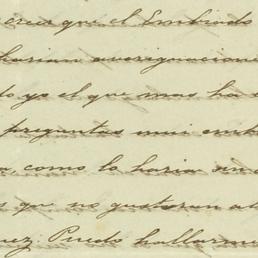 creer que el Embiado
harian averiguacione
do yo el que mas ha
preguntas mui emb
a, como lo haria un
s que no gustaran al
uez. Puedo hallarme